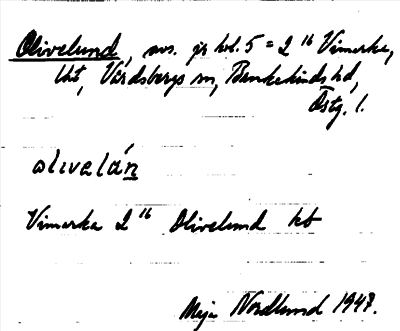 Olivelund, avs. fr hvl. 5 = 2 16 Vimarka,
lht, Vårdsbergs sn, Bankekinds hd,
Östg. l.
olivelún
Vimarka 2 16 Olivelund ht
Maja Nordlund 1947.